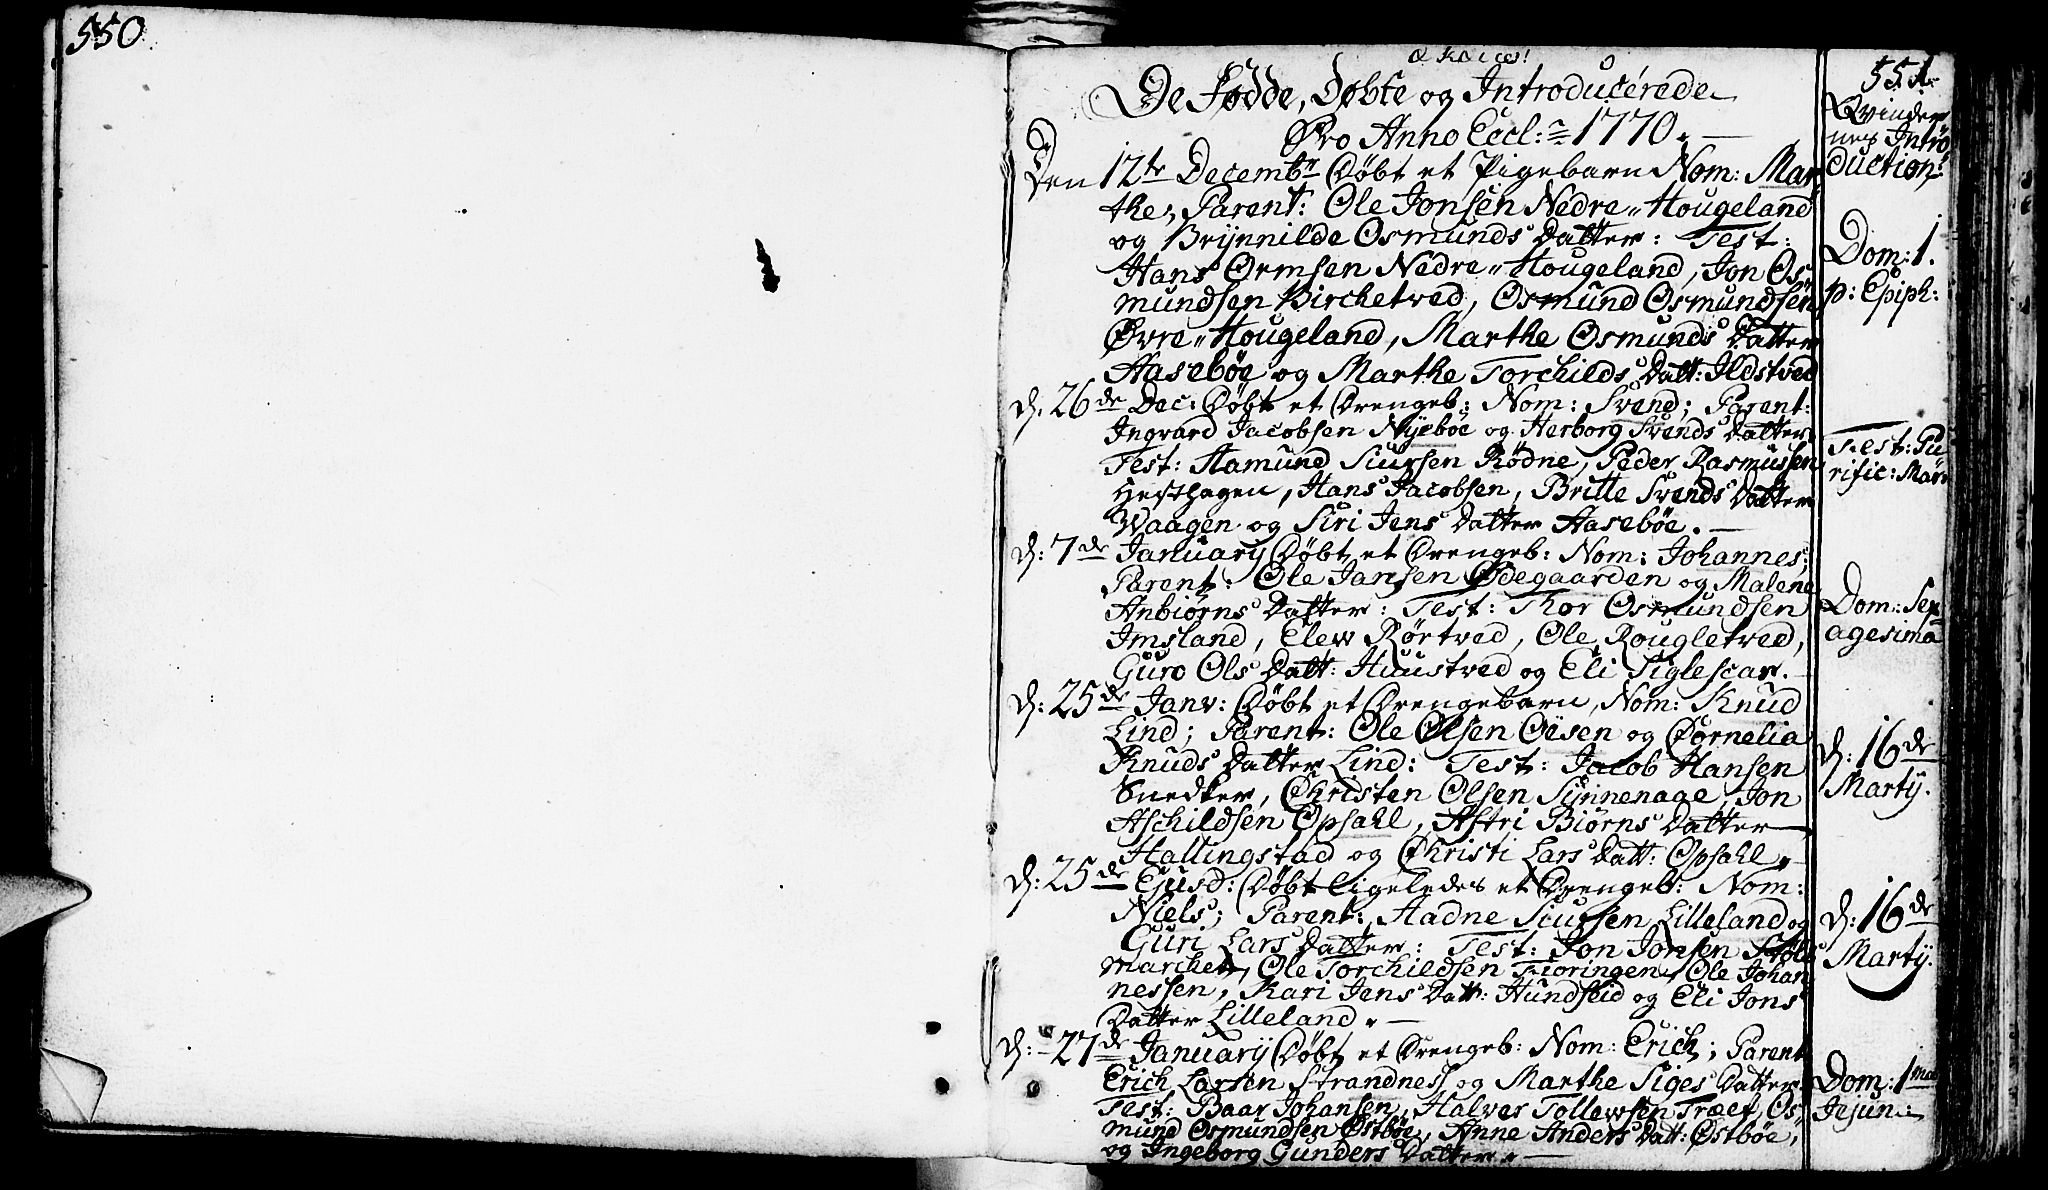 550
551
De Fødde, Døbte og Introducérede
Pro Anno Eccl: 1770.
Qvinder
nes Intro
duction:
Den 12te Decembr Døbt et Pigebarn Nom: Mar
the, Parent: Ole Jonsen Nedre-Hougeland
og Brÿnnilde Osmunds Datter: Test:
Hans Ormsen Nedre-Hougeland, Jon Os
mundsen Birchetved, Osmund Osmundsen
Øvre-Hougeland, Marthe Osmunds Datter
Aasebøe og Marthe Torchilds Datt: Ildstved
Dom: 1.
p: Epiph:
d. 26de Dec: Døbt et Drengeb: Nom: Svend; Parent:
Ingvard Jacobsen Nÿebøe og Herborg Svends Datter
Test: Aamund Siursen Rødne, Peder Rasmussen
Hesthagen, Hans Jacobsen, Britte Svends Datter
Waagen og Siri Jens Datter Aasebøe.
Fest: Pu
rific: Mar:
d: 7de Januarÿ Døbt et Drengeb: Nom: Johannes;
Parent: Ole Jansen Ødegaarden og Malene
Anbiørns Datter: Test: Thor Osmundsen
Imsland, Elew Rørtved, Ole Rougletved,
Guro Ols Datt: Huustved og Eli Siglescar.
Dom: Sep
agesima
d: 25de Janv: Døbt et Drengebarn, Nom: Knud
Lind; Parent: Ole Olsen Oësen og Cornelia
Knuds Datter Lind: Test: Jacob Hansen
Snedker, Christen Olsen Sÿnnenage, Jon
Aschildsen Opsahl, Astri Biørns Datter
Hallingstad og Christi Lars Datt: Opsahl.
d: 16de
Martÿ.
d: 25de Ejusd: Døbt ligeledes et Drengeb: Nom:
Niels; Parent: Aadne Siursen Lilleland og
Guri Lars Datter: Test: Jon Jonsen Støls
marchen, Ole Torchildsen Fioringen, Ole Johan
nessen, Kari Jens Datt: Hundseid og Eli Jons
Datter Lilleland.
d: 16de
Martÿ.
d: 27de Januarÿ Døbt et Drengeb: Nom: Erich; Parent
Erich Larsen Strandness og Marthe Siges Datter
Test: Baar Johansen, Halver Tollewsen Træet, Os
mund Osmundsen Østbøe, Anne Anders Datt: Østbøe,
og Ingeborg Gunders Datter.
Dom: 1ma
Jejun: